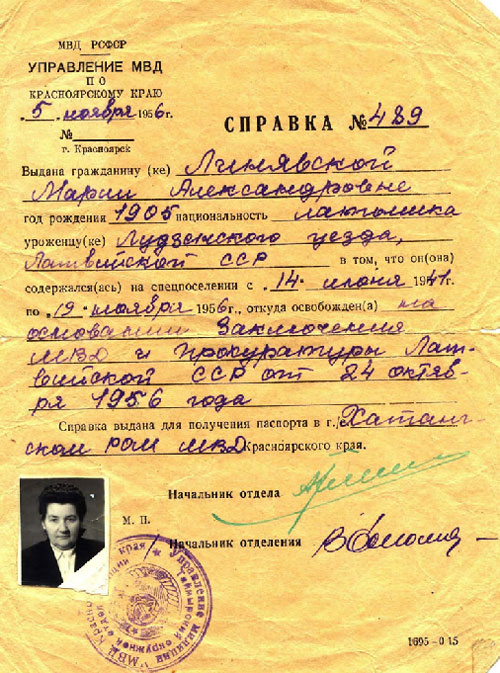 МВД РСФСР
УПРАВЛЕНИЕ МВД
ПО
КРАСНОЯРСКОМУ КРАЮ
„5“ ноября 1956 г.
№
г. Красноярск
СПРАВКА № 489
Выдана гражданину (ке) Линявской
Марии Александровне
год рождения 1905 национальность латышка
уроженцу(ке) Лудзенского уезда,
Латвийской ССР в том, что он(она)
содержался(ась) на спецпоселении с „14“ июня 1941 г.
по „19“ ноября 1956 г., откуда освобожден(а) на
основании Заключения
МВД и Прокуратуры Лат-
вийской ССР от 24 октяб-
ря 1956 года
Справка выдана для получения паспорта в г./ Хатанг-
ском РОМ МВД Красноярского края.
Начальник отдела
М. П.
Начальник отделения
Управление милиции УМВД
Таймырский окружной отдел
1695—015